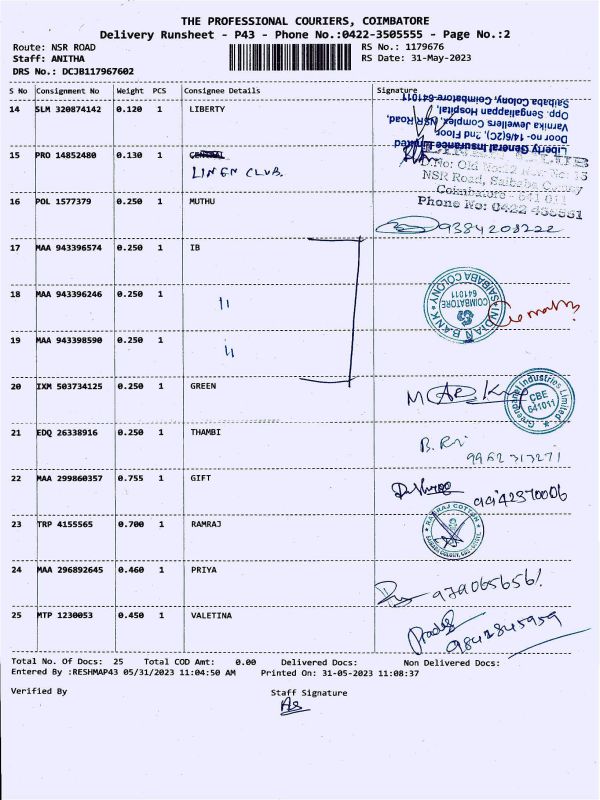 THE PROFESSIONAL COURIERS, COIMBATORE
Delivery Runsheet - P43 - Phone No.:0422-3505555 - Page No.:2
Route: NSR ROAD RS No.: 1179676
Staff: ANITHA RS Date: 31-May-2023
DRS No.: DCJB117967602
S No Consignment No Weight PCS Consignee Details Signature
14 SLM 320874142 0.120 1 LIBERTY
Liberty General Insurance Limited
Door no- 14/6/2(C), 2nd Floor
Varnika Jewellers Complex, NSR Road,
Opp. Sengaliappan Hospital,
Saibaba Colony, Coimbatore-641011
15 PRO 14852480 0.130 1 CENTRAL
LINEN CLUB.
NSR Road, Saibaba Colony
Coimbatore - 641 011
Phone No: 0422
16 POL 1577379 0.250 1 MUTHU
9384208222
17 MAA 943396574 0.250 1 IB
18 MAA 943396246 0.250 1 "
INDIAN BANK SAIBABA COLONY
COIMBATORE
641011
19 MAA 943398590 0.250 1 "
20 IXM 503734125 0.250 1 GREEN
Greenpanel Industries Limited
CBE
641011
21 EDQ 26338916 0.250 1 THAMBI
22 MAA 299860357 0.755 1 GIFT
23 TRP 4155565 0.700 1 RAMRAJ
RAMRAJ COTTON
24 MAA 296892645 0.460 1 PRIYA
25 MTP 1230053 0.450 1 VALETINA
9842845959
Total No. Of Docs: 25 Total COD Amt: 0.00 Delivered Docs: Non Delivered Docs:
Entered By :RESHMAP43 05/31/2023 11:04:50 AM Printed On: 31-05-2023 11:08:37
Verified By Staff Signature